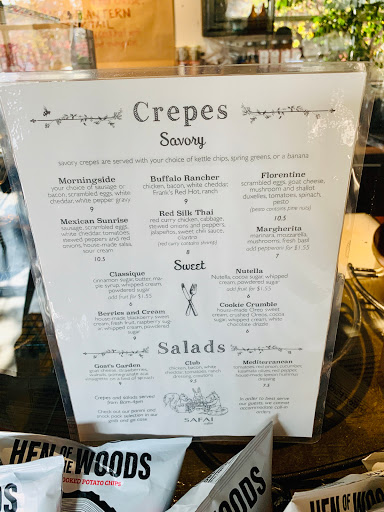 Crepes
Savory
savory crepes are served with your choice of kettle chips, spring greens, or a banana
Morningside
your choice of sausage or
bacon, scrambled eggs, white
cheddar, white pepper gravy
9
Buffalo Rancher
chicken, bacon, white cheddar,
Frank's Red Hot, ranch
9
Florentine
scrambled eggs, goat cheese,
mushroom and shallot
duxelles, tomatoes, spinach,
pesto
(pesto contains pine nuts)
10.5
Mexican Sunrise
sausage, scrambled eggs,
white cheddar, tomatoes,
stewed peppers and red
onions, house-made salsa,
sour cream
10.5
Red Silk Thai
red curry chicken, cabbage,
stewed onions and peppers,
pistachios, sweet chili sauce,
cilantro
(red curry contains shrimp)
8
Margherita
marinara, mozzarella,
mushrooms, fresh basil
add pepperoni for $1.55
7
Sweet
Classique
cinnamon sugar, butter, maple
syrup, whipped cream,
powdered sugar
add fruit for $1.55
6
Nutella
Nutella, cocoa sugar, whipped
cream, powdered sugar
add fruit for $1.55
6
Berries and Cream
house-made blackberry sweet
cream, fresh fruit, raspberry
whipped cream, powdered
sugar
9
Cookie Crumble
house-made Oreo sweet
cream, crushed Oreos, cocoa
sugar, whipped cream, white
chocolate drizzle
6
Salads
Goat's Garden
9
Club
9.5
Mediterranean
Crepes and salads served
from 8am-4pm
SAFAI
HEN OF THE WOODS
COOKED POTATO CHIPS
WOODS
HEN OF THE WOODS